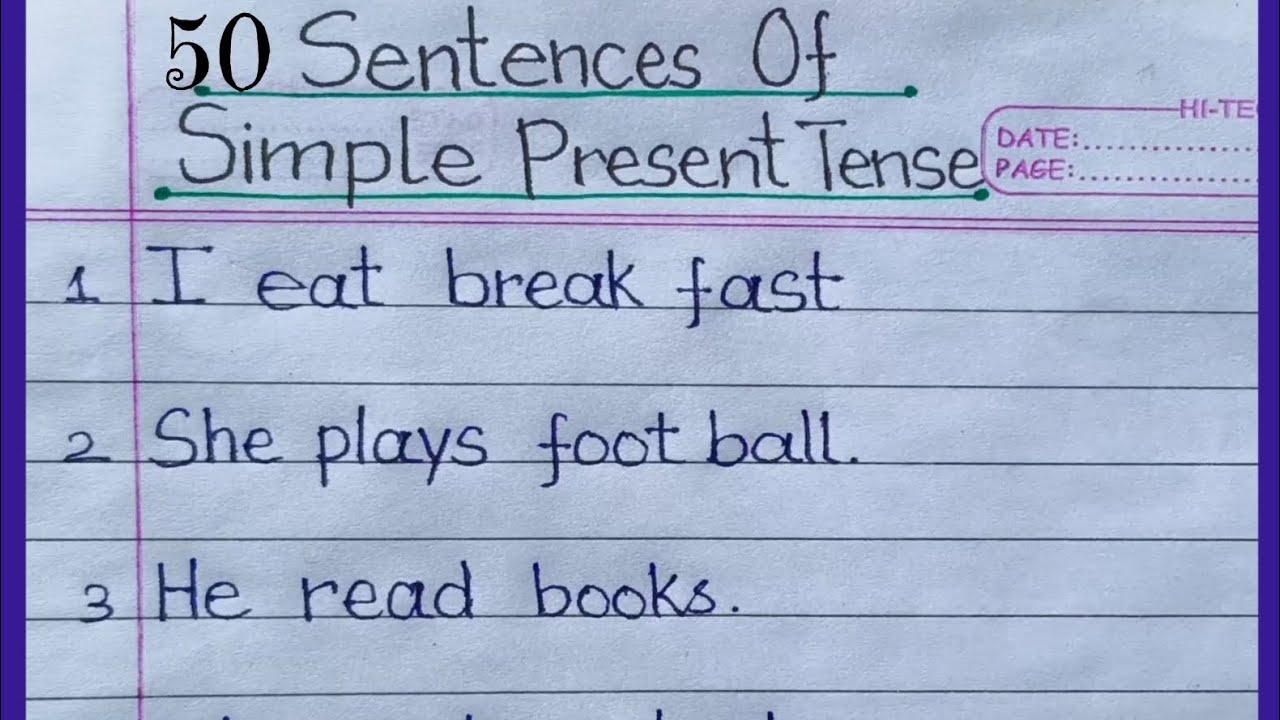 50 Sentences Of
Simple Present Tense
HI-TE
DATE:
PAGE:
1 I eat break fast
2 She plays foot ball.
3 He read books.